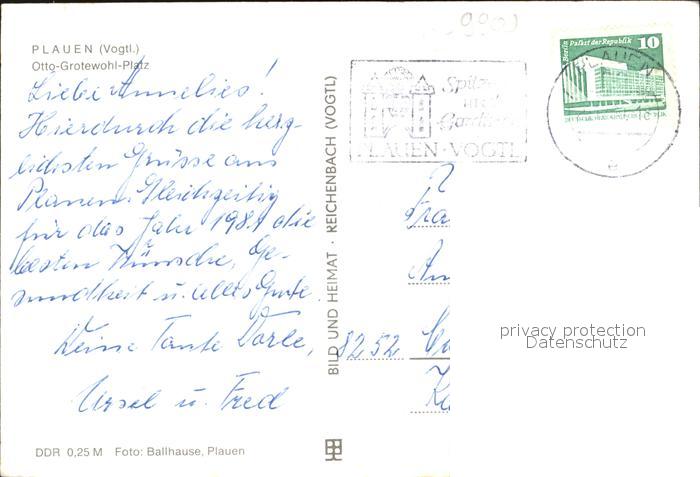 PLAUEN (Vogtl.)
Otto-Grotewohl-Platz
Liebe Annelies!
Hierdurch die herz-
lichsten Grüsse aus
Plauen. Gleichzeitig
für das Jahr 1981 die
besten Wünsche, Ge-
sundheit u. alles Gute.
Deine Tante Dorle,
Ursel u. Fred
DDR 0,25 M Foto: Ballhause, Plauen
BILD UND HEIMAT · REICHENBACH (VOGTL)
Spitzen
und
Gardinen
PLAUEN · VOGTL
Berlin Palast der Republik 10
PLAUEN
Fra
An
8252
privacy protection
Datenschutz